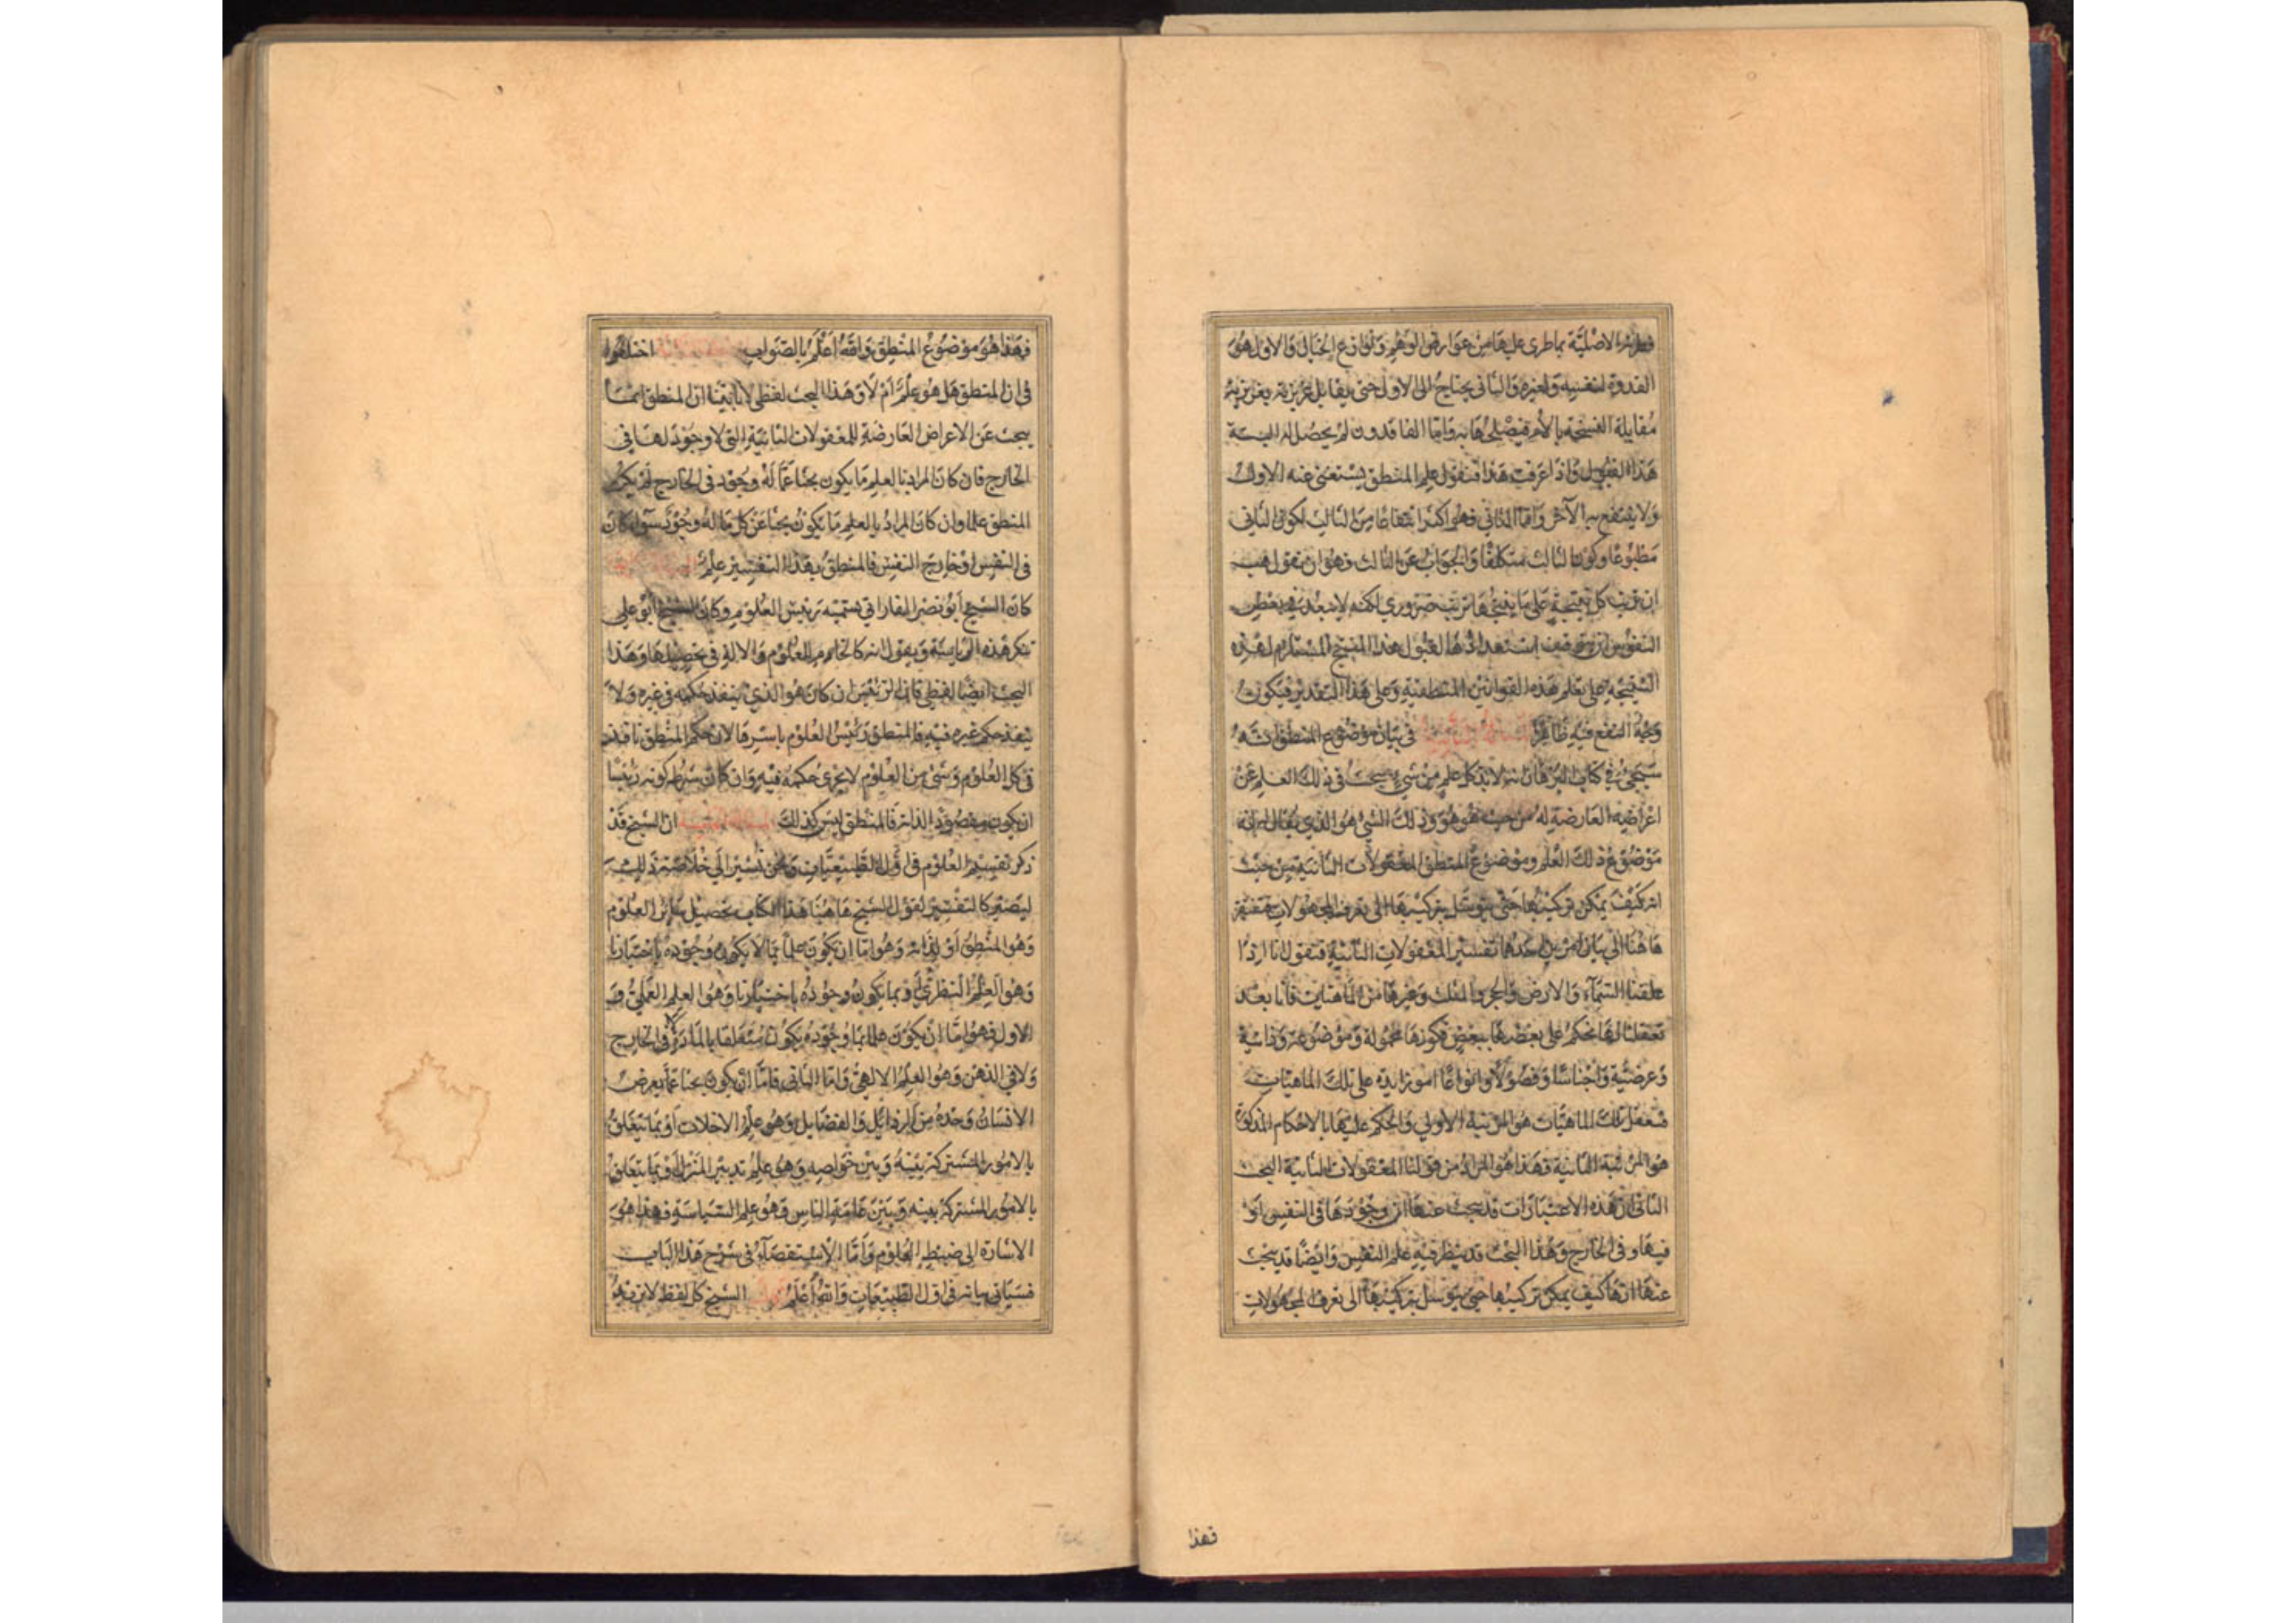 الاصلية بما طرى عليها من عوارض الوهم ونوازع الخيال والاول هو
القدوة لنفسه ولغيره والثانى يحتاج الى الاول حتى يقابل غريزته بغريزته
مقابلة النسخة بالأم فيصلحها به واما الفاقدون لم يحصل له البتة
هذا القبيل واذا عرفت هذا فنقول علم المنطق يستغنى عنه الاول
ولا ينتفع به الآخر واما الثانى فهو اكثر انتفاعا من الثالث لكون الثانى
مطبوعا وكون الثالث متكلفا والجواب عن الثالث وهو ان نقول هب
ان ترتب كل نتيجة على ما ينتجها ترتب ضرورى لكنه لا يبعد فى بعض
النفوس ان يتوقف استعدادها لقبول هذا المنتج المستلزم لهذه
النتيجة على تعلم هذه القوانين المنطقية وعلى هذا التقدير فيكون
وجه النفع فيه ظاهرا فى بيان موضوع المنطق انه
سيجئ فى كتاب البرهان انه لا بد لكل علم من شئ يبحث فى ذلك العلم عن
اعراضه العارضة له من حيث هو هو وذلك الشئ هو الذى يقال له انه
موضوع ذلك العلم وموضوع المنطق المعقولات الثانية من حيث
انه كيف يمكن تركيبها حتى يتوسل بتركيبها الى تعرف المجهولات فنفتقر
هاهنا الى بيان امرين احدهما تفسير المعقولات الثانية فنقول انا اذا
عقلنا السماء والارض والحجر والملك وغيرها من الماهيات فانا بعد
تعقلنا لها نحكم على بعضها ببعض فكونها محمولة وموضوعة وذاتية
وعرضية واجناسا وفصولا وانواعا امور زايدة على تلك الماهيات
فتعقل تلك الماهيات هو المرتبة الاولى والحكم عليها بالاحكام المذكورة
هو المرتبة الثانية وهذا هو المراد من قولنا المعقولات الثانية البحث
الثانى ان هذه الاعتبارات قد يبحث عنها ان وجودها فى النفس او
فيها وفى الخارج وهذا البحث قد ينظر فيه علم النفس وايضا قد يبحث
عنها انها كيف يمكن تركيبها حتى يتوسل بتركيبها الى تعرف المجهولات
فهذا
فهذا هو موضوع المنطق والله اعلم بالصواب اختلفوا
فى ان المنطق هل هو علم ام لا وهذا البحث لفظى لانا بينا ان المنطق انما
يبحث عن الاعراض العارضة للمعقولات الثانية التى لا وجود لها فى
الخارج فان كان المراد بالعلم ما يكون بحثا عما له وجود فى الخارج لم يكن
المنطق علما وان كان المراد بالعلم ما يكون بحثا عن كل ما له وجود سواء كان
فى النفس او خارج النفس فالمنطق بهذا التفسير علم
كان الشيخ ابو نصر الفارابى يسميه رئيس العلوم وكان الشيخ ابو على
ينكر هذه الرياسة ويقول انه كالخادم للعلوم والالة فى تحصيلها وهذا
البحث ايضا لفظى فان الرئيس ان كان هو الذى ينفذ حكمه فى غيره ولا
ينفذ حكم غيره فيه فالمنطق رئيس العلوم باسرها لان حكم المنطق نافذ
فى كل العلوم وشئ من العلوم لا يجرى حكمه فيه وان كان شرط كونه رئيسا
ان يكون مقصودا لذاته فالمنطق ليس كذلك ان الشيخ قد
ذكر تقسيم العلوم فى اول الطبيعيات ونحن نشير الى خلاصة ذلك
ليصير كالتفسير لقول الشيخ هاهنا هذا الكتاب تحصيل سائر العلوم
وهو المنطق او لذاته وهو اما ان يكون علما بما لا يكون وجوده باختيارنا
وهو العلم النظرى او بما يكون وجوده باختيارنا وهو العلم العملى و
الاول فهو اما ان يكون علما بما وجوده يكون متعلقا بالمادة فى الخارج
ولا فى الذهن وهو العلم الالهى واما الثانى فاما ان يكون بحثا عما يعرض
الانسان وحده من الرذائل والفضايل وهو علم الاخلاق او بما يتعلق
بالامور المشتركة بينه وبين خواصه وهو علم تدبير المنزل او بما يتعلق
بالامور المشتركة بينه وبين عامة الناس وهو علم السياسة فهذا هو
الاشارة الى ضبط العلوم واما الاستقصاء فى شرح هذا الباب
فسياتى بيانه فى اول الطبيعيات والله اعلم الشيخ كل لفظ لا تريد